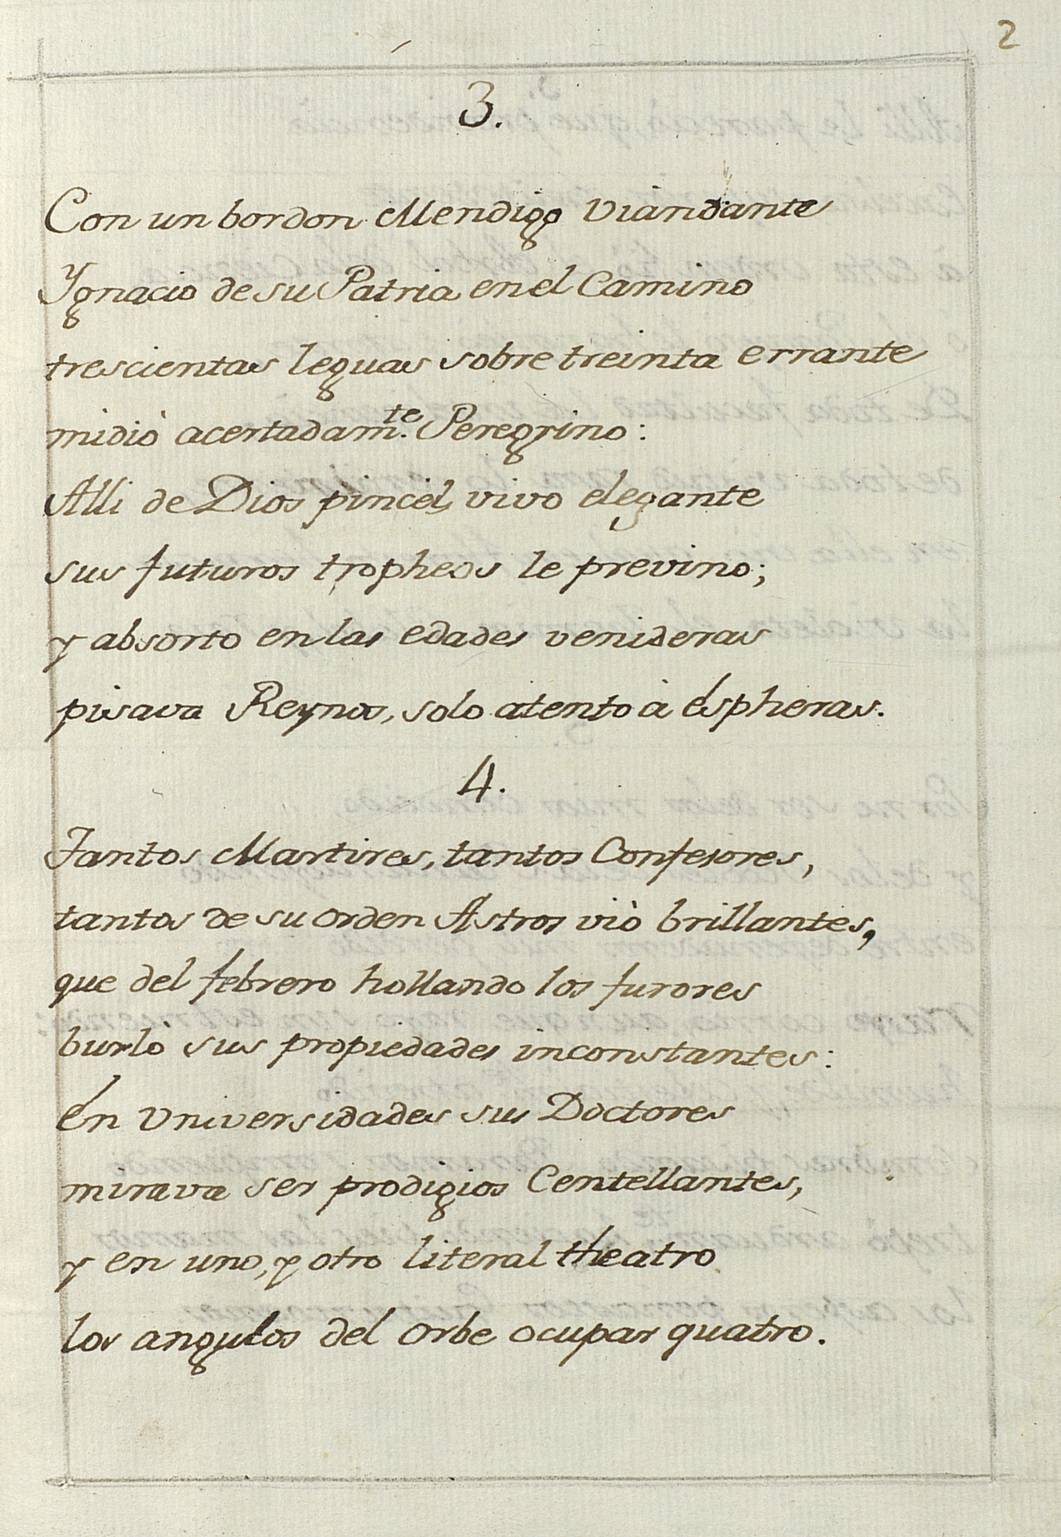 2
3.
Con un bordon Mendigo Viandante
Ygnacio de su Patria en el Camino
trescientas leguas sobre treinta errante
midiò acertadam.te Peregrino:
Alli de Dios pincèl, vivo elegante
sus futuros tropheos le previno;
y absorto en las edades venideras
pisava Reynos, solo atento à Espheras.
4.
Tantos Martires, tantos Confesores,
tantos de su orden Astros viò brillantes,
que del febrero hollando los furores
burlò sus propiedades inconstantes:
En Universidades sus Doctores
mirava ser prodigios Centellantes,
y en uno, y otro literal theatro
los angulos del orbe ocupar quatro.